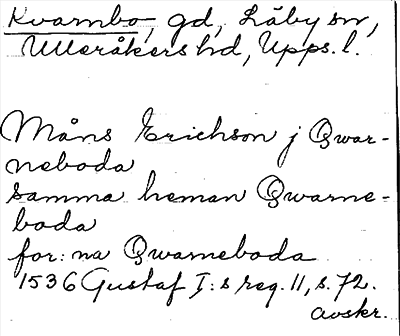 Kvarnbo, gd, Läby sn,
Ulleråkers hd, Upps. l.
Måns Erichson j Qwar-
neboda
samma heman Qwarne-
boda
for: na Qwarneboda
1536 Gustaf I:s reg. 11, s. 72.
avskr.